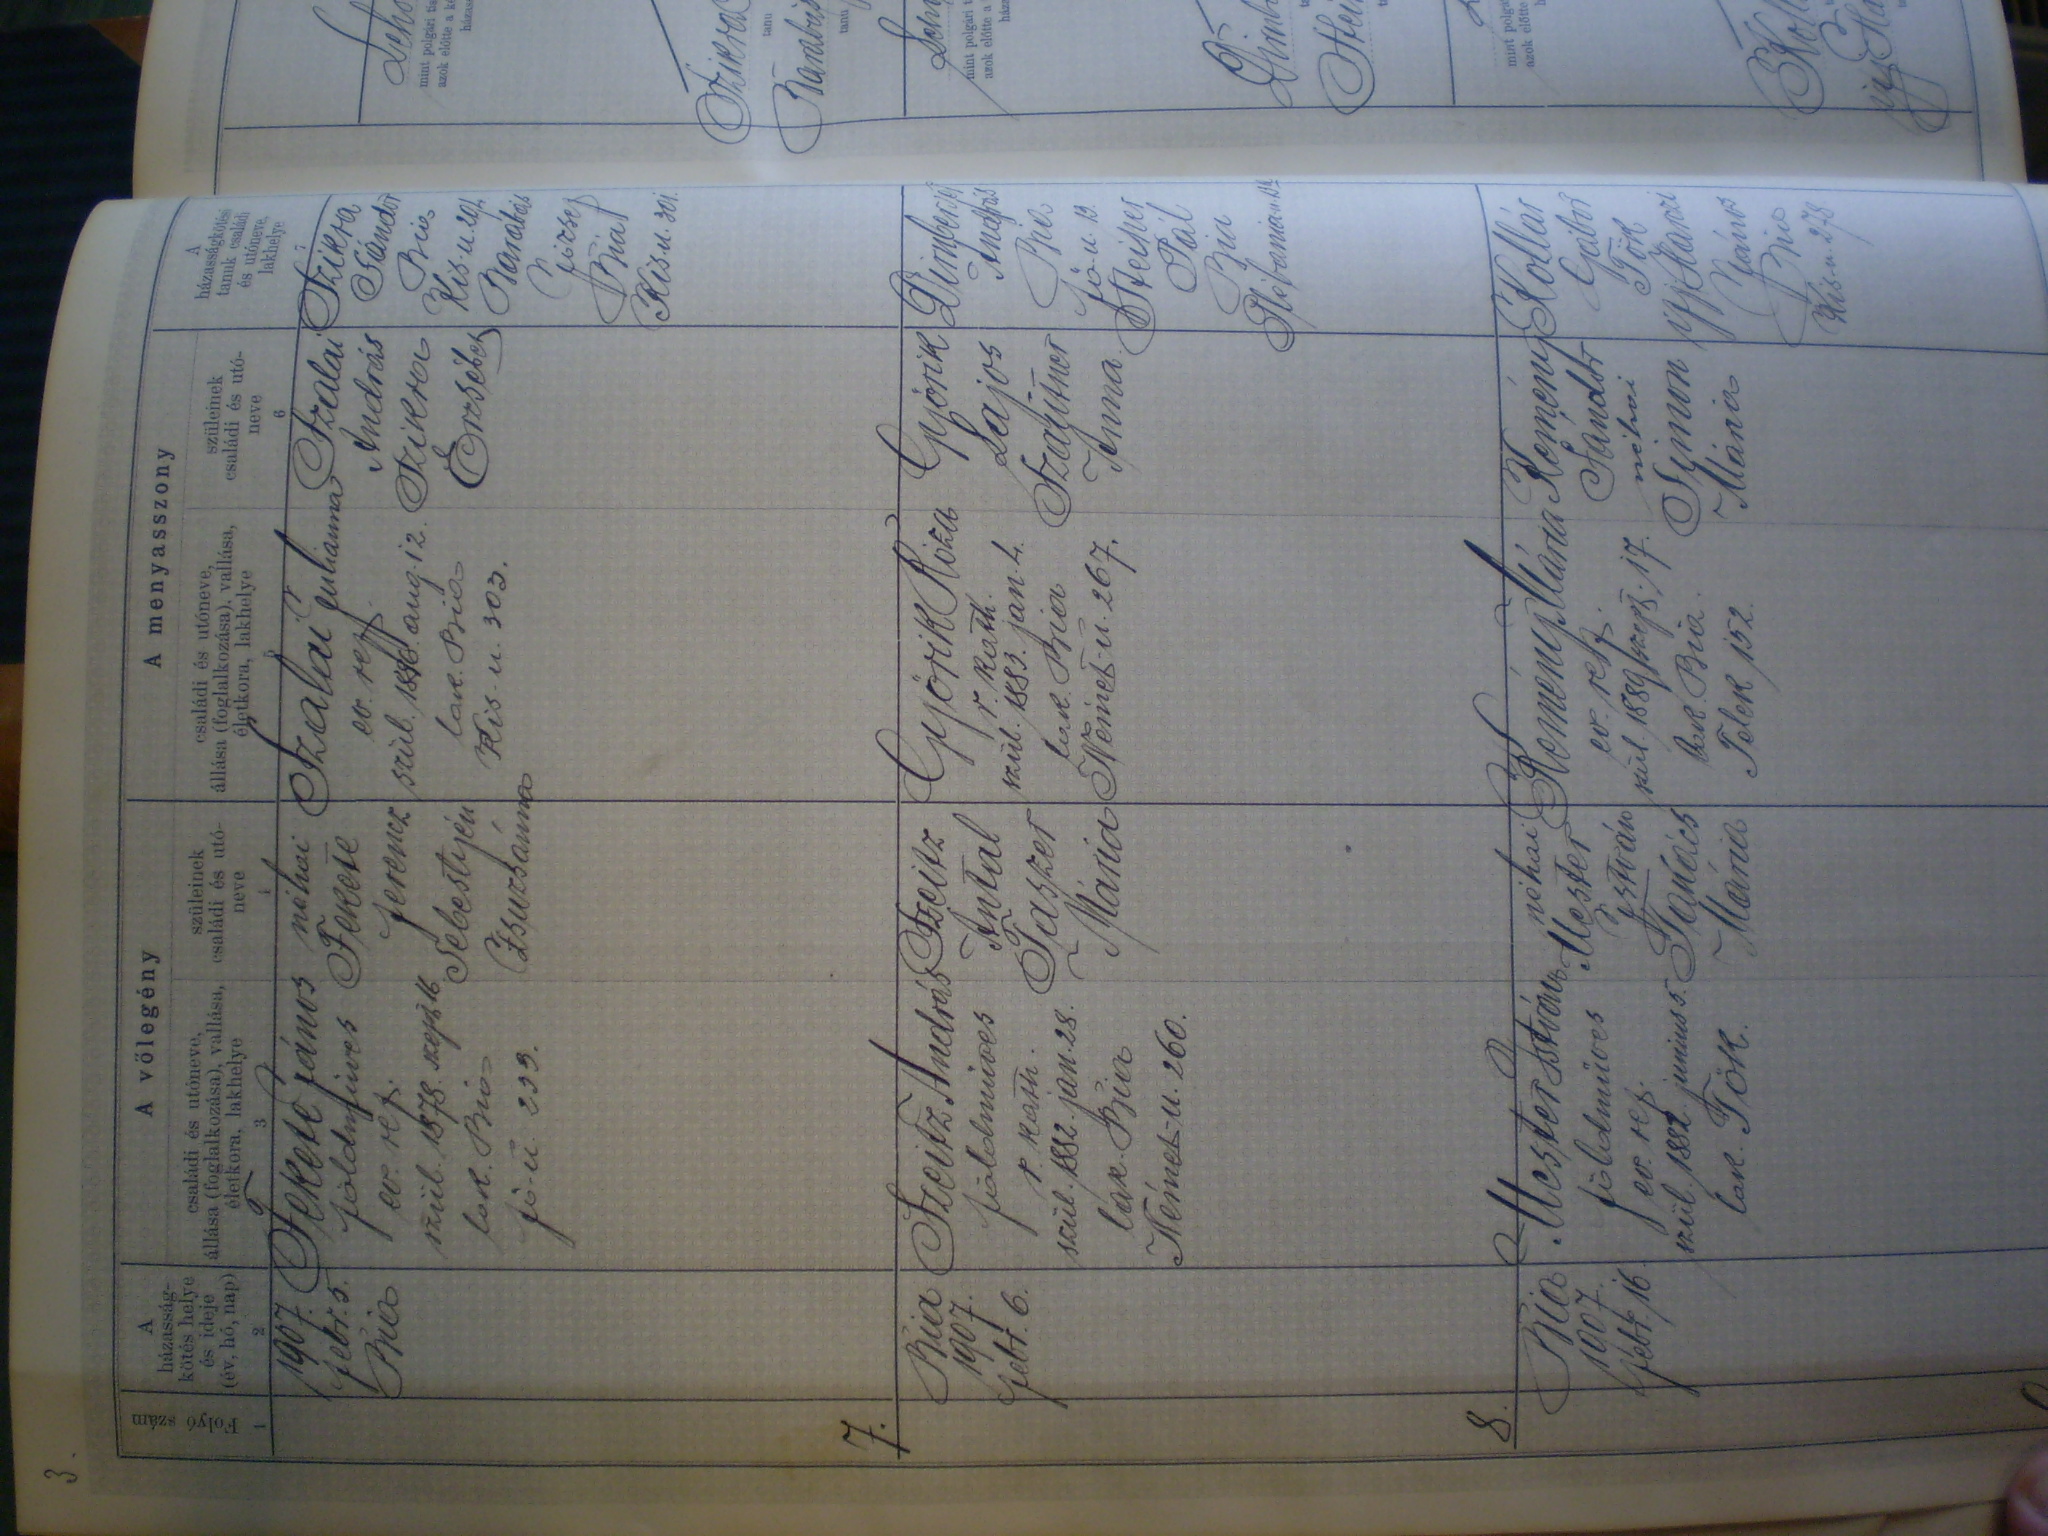 3.
A vőlegény
A menyasszony
Folyó szám
1
A
házasság-
kötés helye
és ideje
(év, hó, nap)
2
családi és utóneve,
állása (foglalkozása), vallása,
életkora, lakhelye
3
szüleinek
családi és utó-
neve
4
családi és utóneve,
állása (foglalkozása), vallása,
életkora, lakhelye
5
szüleinek
családi és utó-
neve
6
A
házasságkötési
tanuk családi
és utóneve,
lakhelye
7
1907.
febr. 5.
Bia
Fekete János
földmíves
ev. ref.
szül. 1878. szept. 16
lak. Bia
fő-u. 299.
néhai
Fekete
Ferencz
Sebestyén
Zsuzsánna
Szalai Juliánna
ev. ref.
szül. aug. 12.
lak. Bia
Kis-u. 303.
Szalai
András
Szikra
Erzsébet
Szikra
Sándor
Bia
Kis-u.
Barabás
József
Bia
Kis-u. 301.
7.
Bia
1907.
febr. 6.
Szeitz András
földmíves
r. kath.
szül. 1882. jan. 28.
lak. Bia
Német-u. 260.
Szeitz
Antal
Taszer
Mária
Győrik Róza
r. kath.
szül. 1883. jan. 4.
lak. Bia
Német-u. 267.
Győrik
Lajos
Anna
András
Bia
fő-u. 19.
Pál
Bia
8.
Bia
1907.
febr. 16.
Mester István
földmüves
ev. ref.
szül. 1882. junius 5.
lak. Tök.
néhai
Mester
István
Takács
Mária
Kemény Mária
ev. ref.
szül. 1889 szept. 17.
lak. Bia.
Telek 152.
Kemény
Sándor
néhai
Simon
Mária
Kollár
Gábor
Tök
ifj.
János
Bia
Kis-u. 278
mint polgári
azok előtte a
Szikra
Barabás
tanu
tanu
mint polgári
azok előtte a
mint polgári
azok előtte
ifj